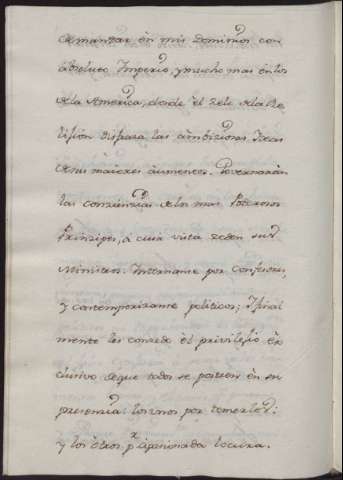 de mandar èn mis Dominios con
absoluto Imperio, y mucho mas èn los
de la America, desde èl Zelo de la Re
ligión disfraza las àmbiziosas Ideas
de mis maiores àumentos. Governarán
las conziencias de los mas Poderosos
Prinzipes, à cuia vista zeden sus
Ministros. Internanse por Confesores,
y contemporizante politicos; Ifinal
mente les conzedo èl privilegio èx
clusivo de que todos se postren èn su
presencia: los unos por temerles;
y los òtros pr. apasionada locura.